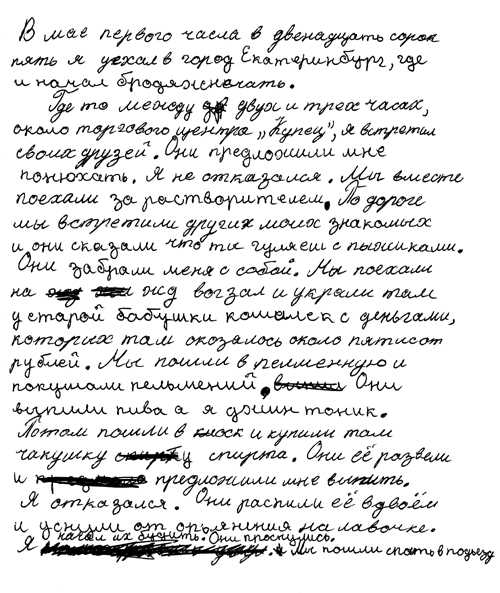 В мае первого числа в двенадцать сорок
пять я уехал в город Екатеринбург, где
и начал бродяжничать.
Где то между двух и трех часах,
около торгового центра „Купец", я встретил
своих друзей. Они предложили мне
понюхать. Я не отказался. Мы вместе
поехали за растворителем. По дороге
мы встретили других моих знакомых
и они сказали что ты гуляеш с пыжиками.
Они забрали меня с собой. Мы поехали
на жд вогзал и украли там
у старой бабушки кошелек с деньгами,
которих там оказалось около пятисот
рублей. Мы пошли в пелменную и
покушали пельмений, Они
выпили пива а я джин тоник.
Потом пошли в киоск и купили там
чакушку спирта. Они её развели
и предложили мне выпить.
Я отказался. Они распили её вдвоём
и уснули от опьянения на лавочке.
Я начал их будить. Они проснулись. Мы пошли спать в подъезд